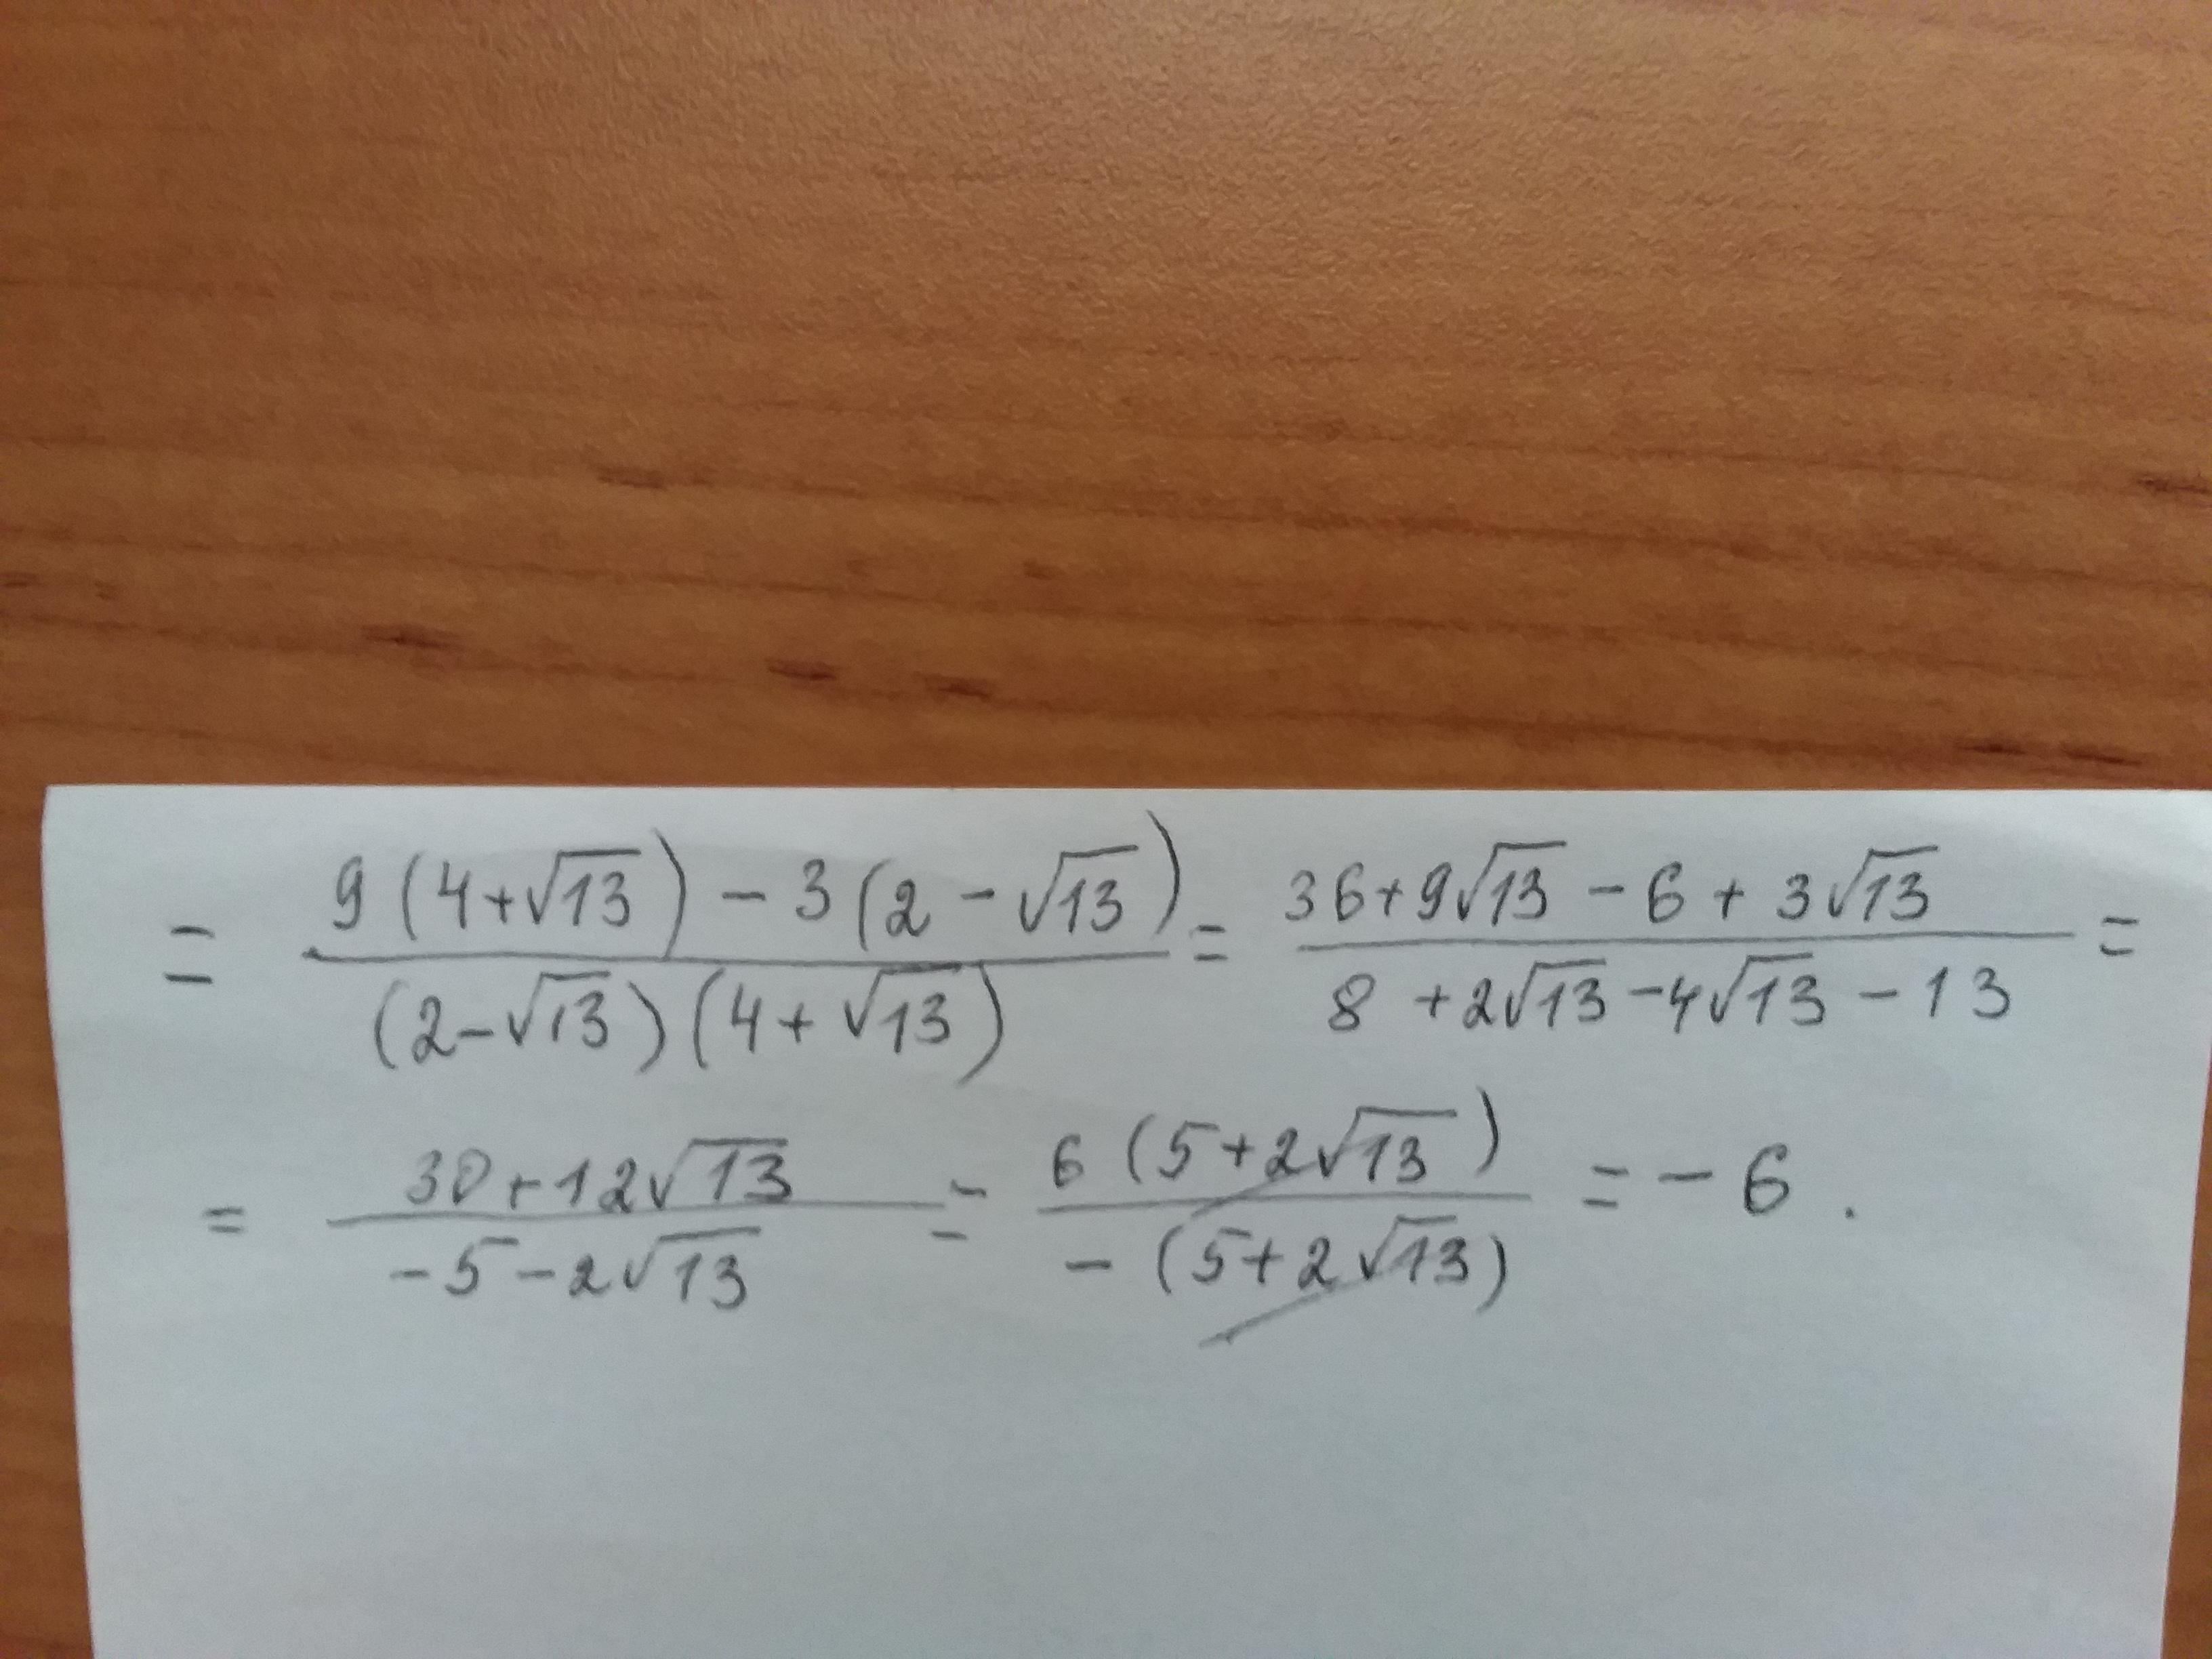 = (9(4+√13) - 3(2-√13))/((2-√13)(4+√13)) = (36+9√13-6+3√13)/(8+2√13-4√13-13) =
= (30+12√13)/(-5-2√13) = (6(5+2√13))/(-(5+2√13)) = -6.